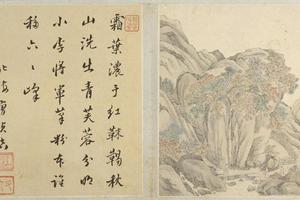 霜葉濃于紅靺鞨秋
山洗出青芙蓉分明
小李將軍筆粉本誰
移六々峰